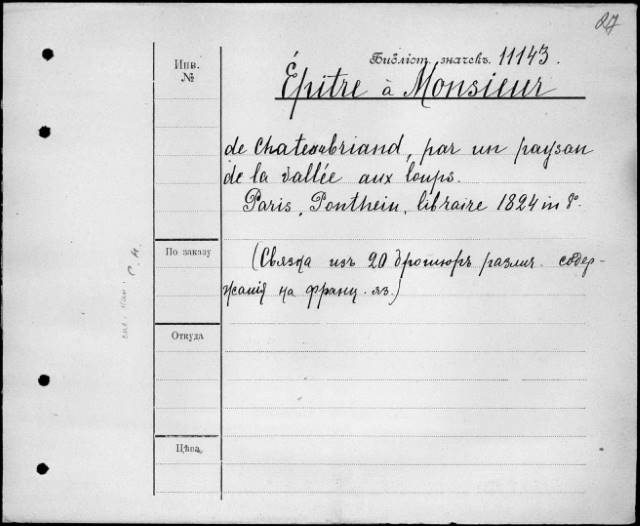 27
Библіот. значекъ 11143.
Инв.
№
Épitre à Monsieur
de Chateaubriand, par un paysan
de la vallée aux loups.
Paris, Ponthein, libraire 1824 in 8º.
По заказу
(Связка изъ 20 брошюръ различ. содер-
жанія на франц. яз.)
Откуда
Цѣна